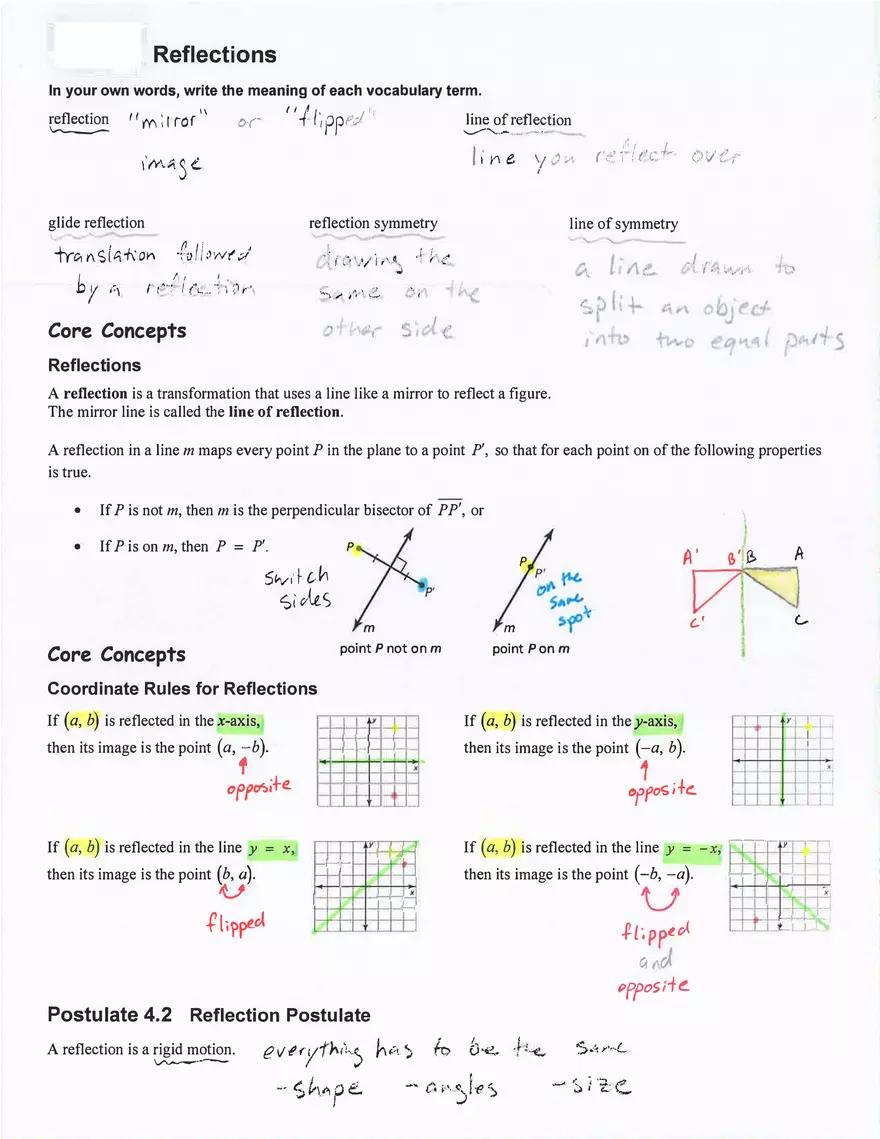 Reflections
In your own words, write the meaning of each vocabulary term.
reflection "mirror" or "flipped"
image
line of reflection
line you reflect over
glide reflection
translation followed
by a reflection
reflection symmetry
drawing the
same on the
other side
line of symmetry
a line drawn to
split an object
into two equal parts
Core Concepts
Reflections
A reflection is a transformation that uses a line like a mirror to reflect a figure.
The mirror line is called the line of reflection.
A reflection in a line m maps every point P in the plane to a point P′, so that for each point on of the following properties
is true.
• If P is not m, then m is the perpendicular bisector of PP′, or
• If P is on m, then P = P′.
switch
sides
P
P'
m
point P not on m
P
P'
on the
same
spot
m
point P on m
A' B' B A
C' C
Core Concepts
Coordinate Rules for Reflections
If (a, b) is reflected in the x-axis,
then its image is the point (a, −b).
opposite
y
x
If (a, b) is reflected in the y-axis,
then its image is the point (−a, b).
opposite
y
x
If (a, b) is reflected in the line y = x,
then its image is the point (b, a).
flipped
y
x
If (a, b) is reflected in the line y = −x,
then its image is the point (−b, −a).
flipped
and
opposite
y
x
Postulate 4.2 Reflection Postulate
A reflection is a rigid motion. everything has to be the same
- shape - angles - size